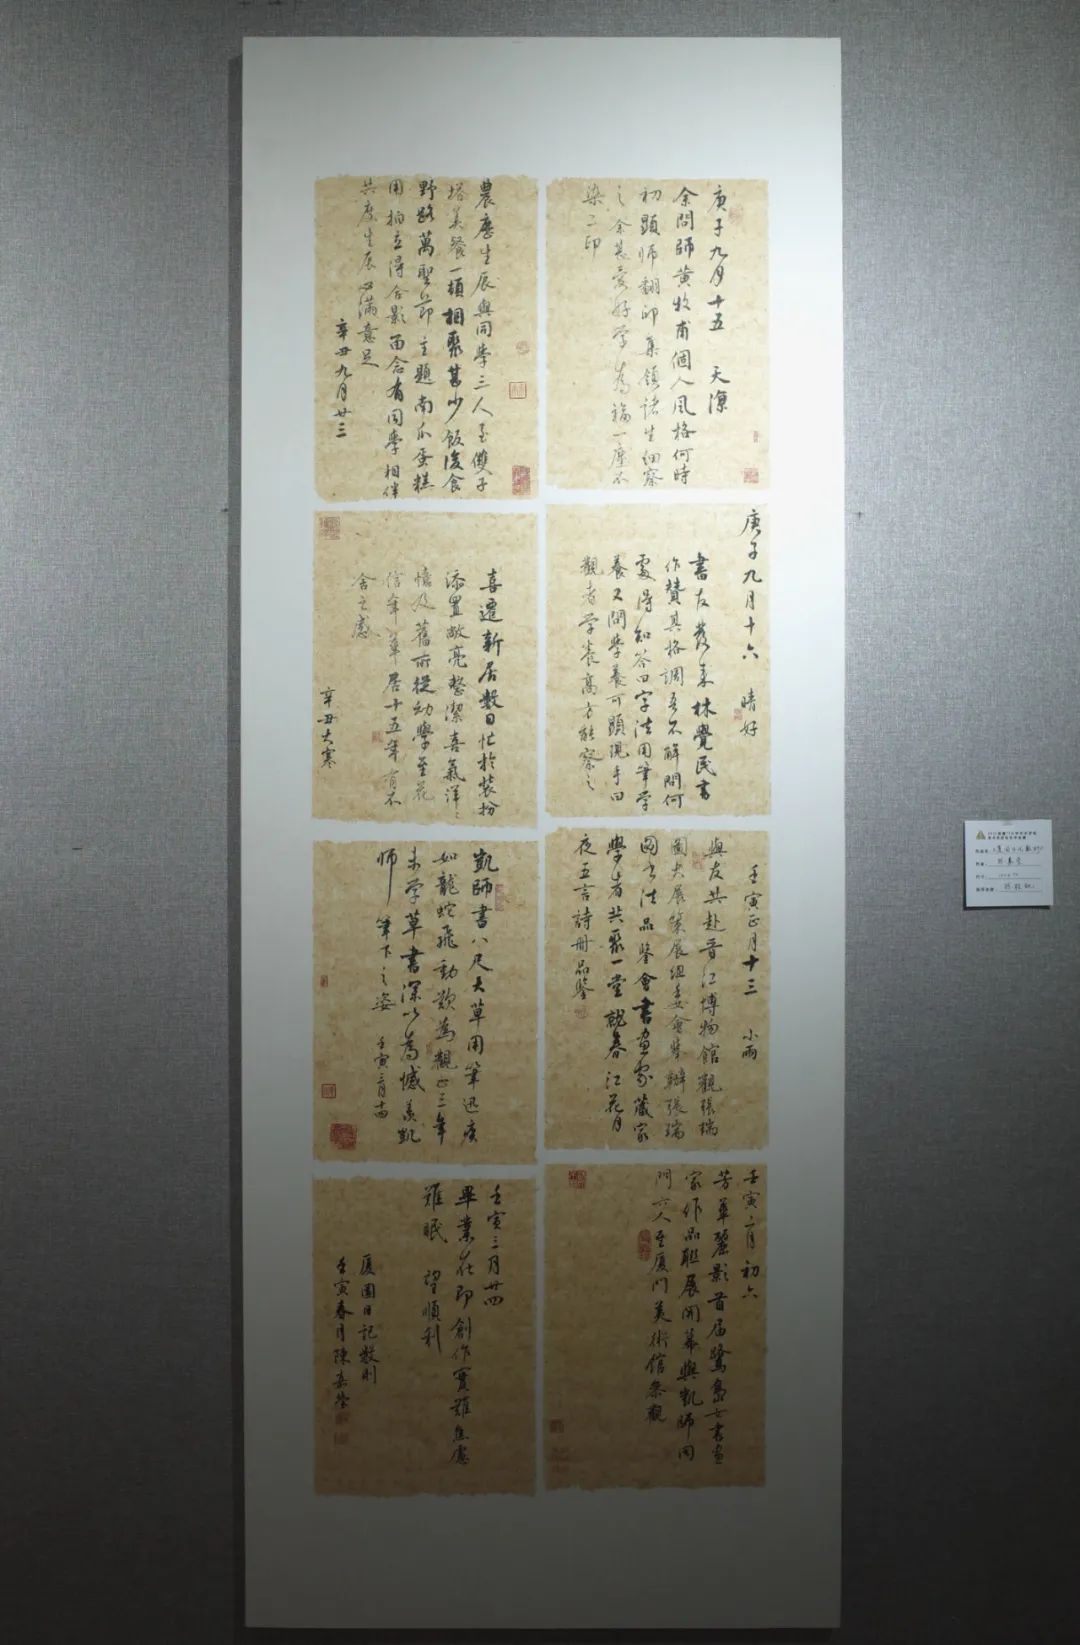 庚子九月十五 天涼
余問師黃牧甫個人風格何時
初顯師翻印集領諸生細察
之余甚愛好學為福一塵不
染二印
庚子九月十六 晴好
書友發來林覺民書
作贊其格調吾不解問何
處得知答曰字法用筆學
養又問學養可顯現乎曰
觀者學養高方能察之
壬寅正月十三 小雨
與友共赴晉江博物館觀張瑞
圖大展策展組委會舉辦張瑞
圖書法品鑒會書畫家藏家
學者共聚一堂就春江花月
夜五言詩冊品鑒
壬寅二月初六
芳華麗影首届鷺島女書畫
家作品聯展開幕與凱師同
門六人至厦門美術館參觀
農歷生辰與同學三人至雙子
塔美餐一頓相聚甚少飯後食
野路萬聖節主題南瓜蛋糕
用拍立得合影留念有同學相伴
共度生辰心滿意足
辛丑九月廿三
喜遷新居數日忙於裝扮
添置敞亮整潔喜氣洋洋
憶及舊所從幼學至花
信年華居十五年有不
舍之感
辛丑大寒
凱師書八尺大草用筆迅疾
如龍蛇飛動歎為觀止三年
未學草書深以為憾羨凱
師筆下之姿
壬寅二月十四
壬寅三月廿四
畢業在即創作實難焦慮
難眠 望順利
厦圖日記數則
壬寅春月陳嘉瑩